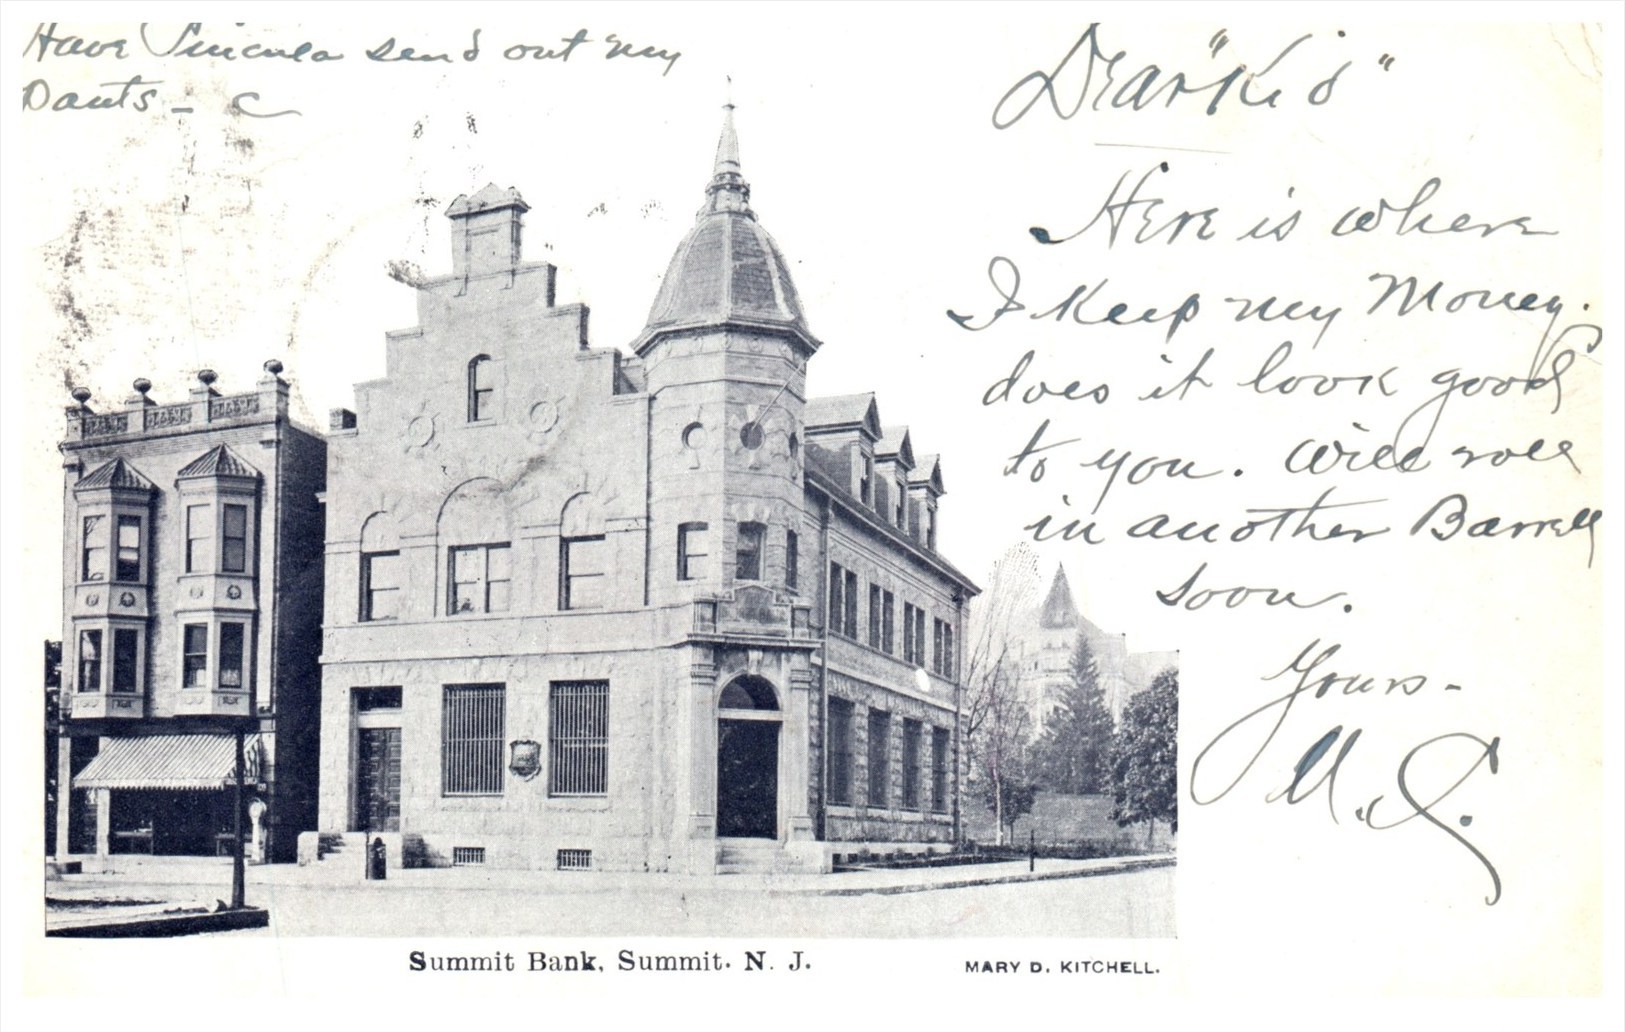 Have send out my
Pants - C
Dear "Kid"
Here is where
I Keep my Money.
does it look good
to you. Will roll
in another Barrell
soon.
Yours -
M. S.
Summit Bank, Summit. N. J.
MARY D. KITCHELL.